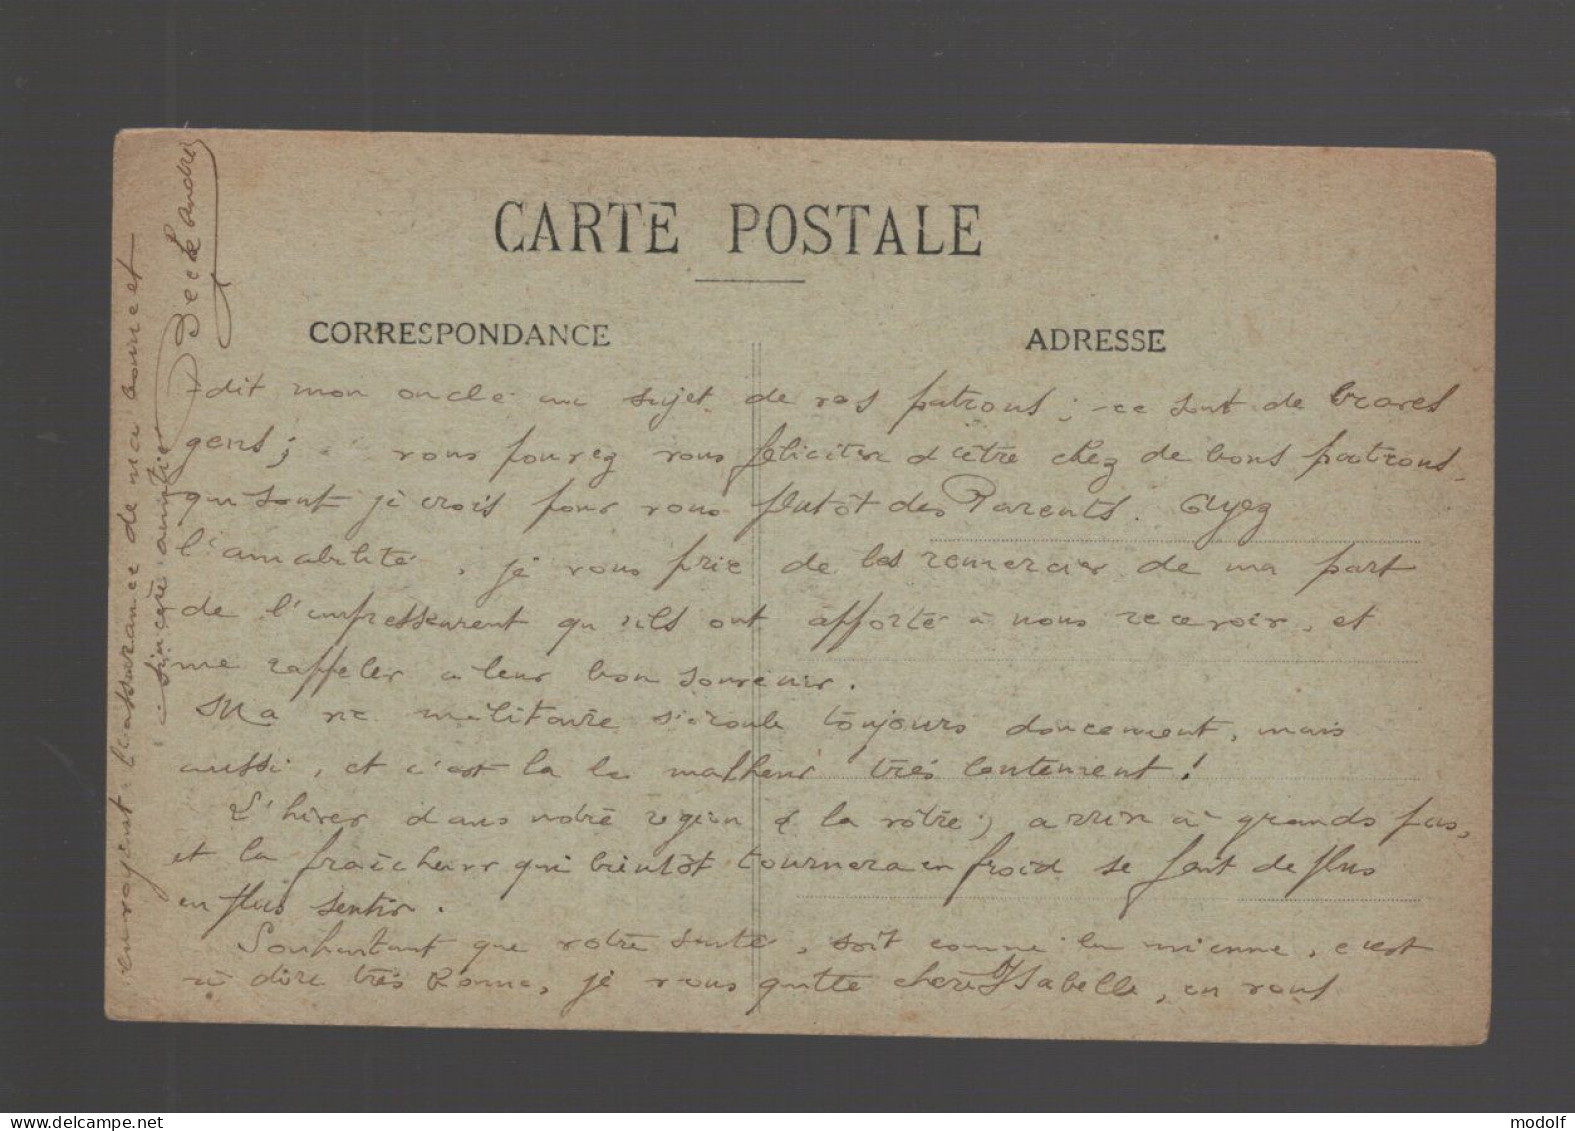 CARTE POSTALE
CORRESPONDANCE
ADRESSE
dit mon oncle au sujet de vos patrons ; ce sont de braves
gens ; vous pouvez vous féliciter d'être chez de bons patrons
qui sont je crois pour vous plutôt des Parents. Ayez
l'amabilité, je vous prie de les remercier de ma part
de l'empressement qu'ils ont apporté à nous recevoir, et
me rappeler à leur bon souvenir.
Ma vie militaire s'écoule toujours doucement, mais
aussi, et c'est là le malheur très lentement !
L'hiver dans notre région & la vôtre, arrive à grands pas,
et la fraîcheur qui bientôt tournera en froid se fait de plus
en plus sentir.
Souhaitant que votre santé, soit comme la mienne, c'est
à dire très bonne, je vous quitte chère Isabelle, en vous
envoyant l'assurance de ma bonne et
sincère amitié
André
www.delcampe.net
modolf